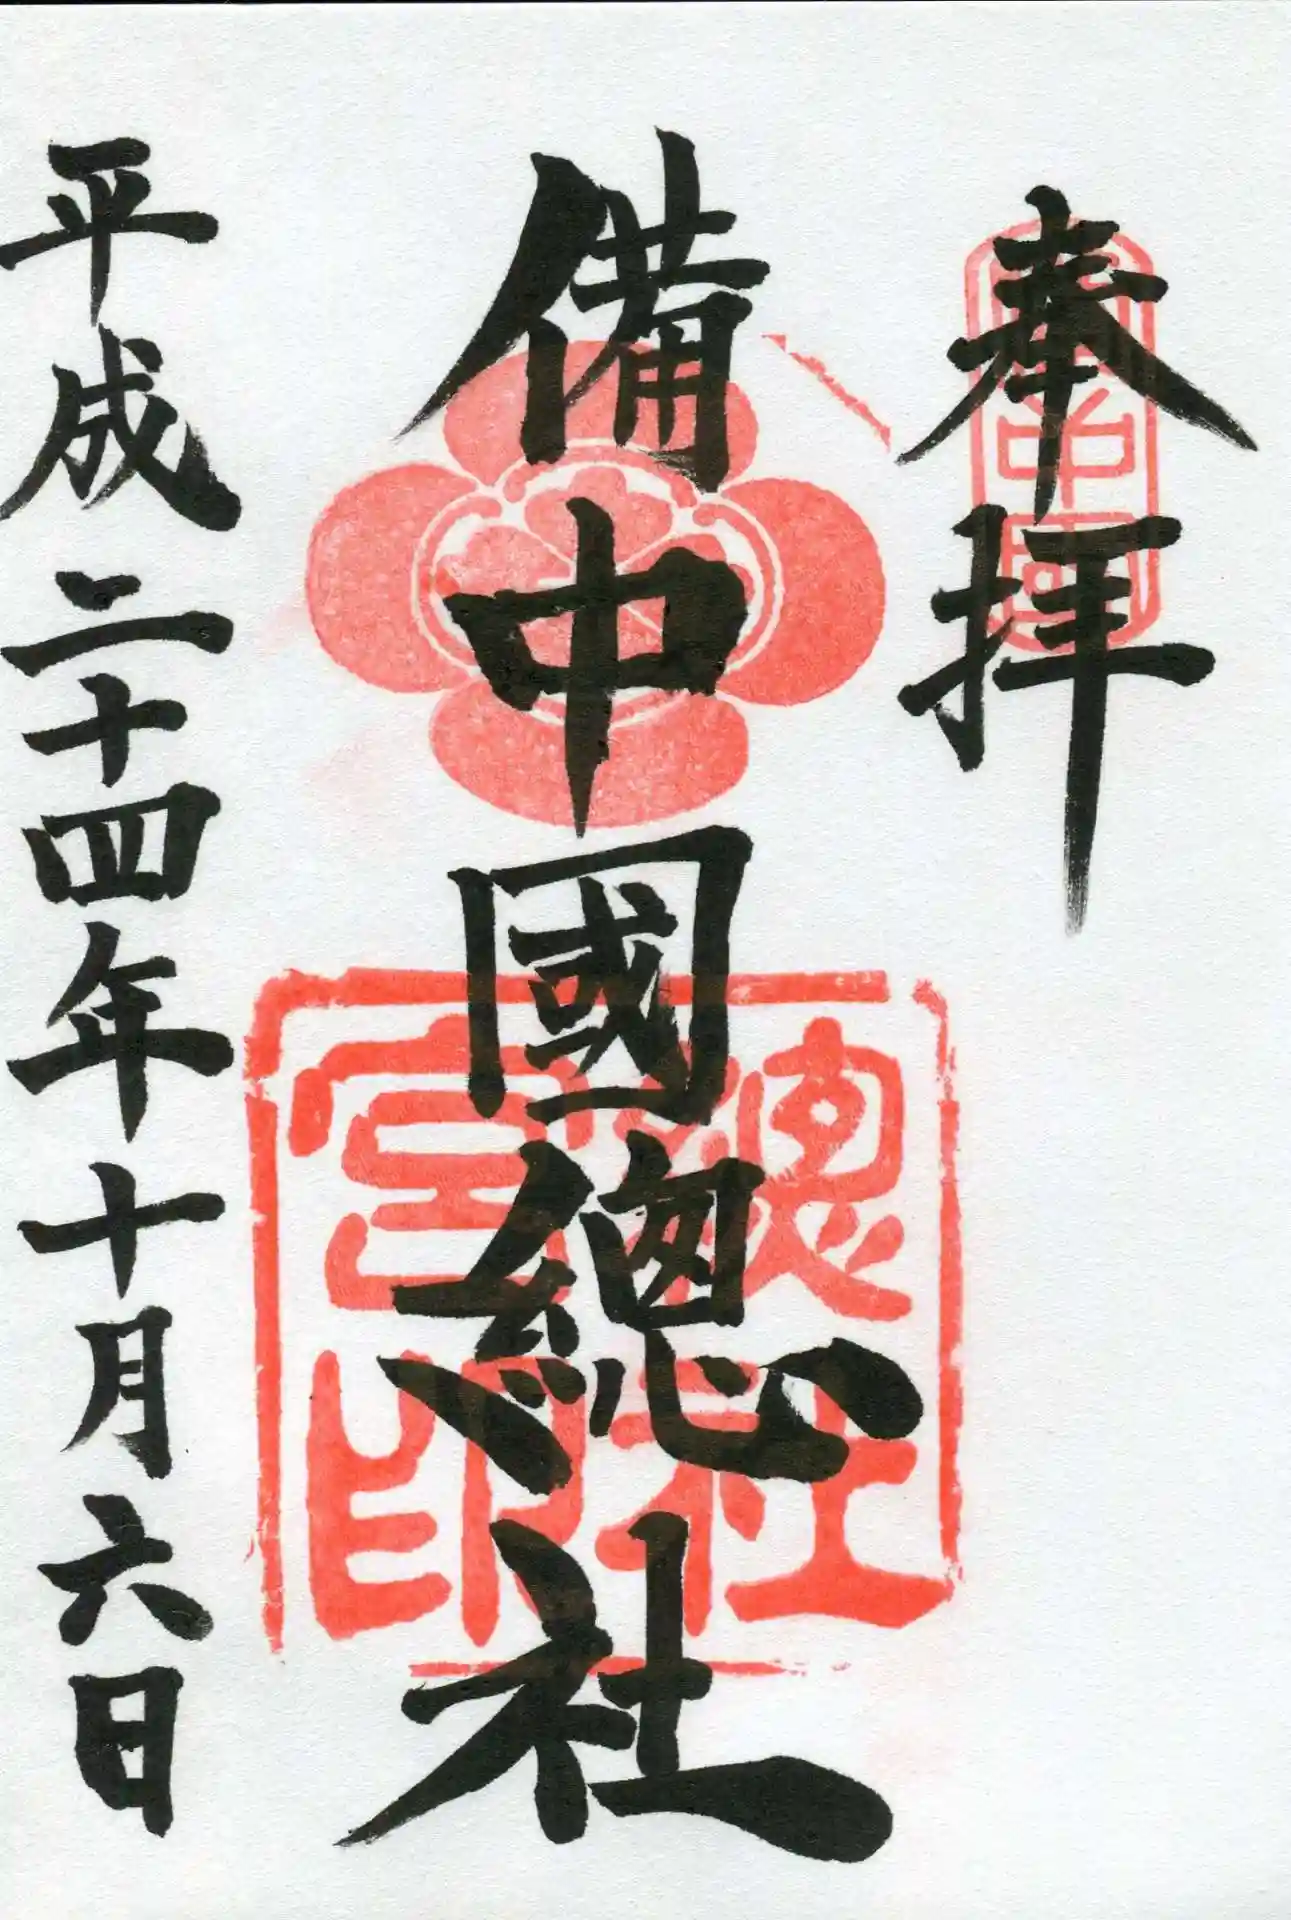 奉拝
備中國
備中國總社
總社
宮印
平成二十四年十月六日